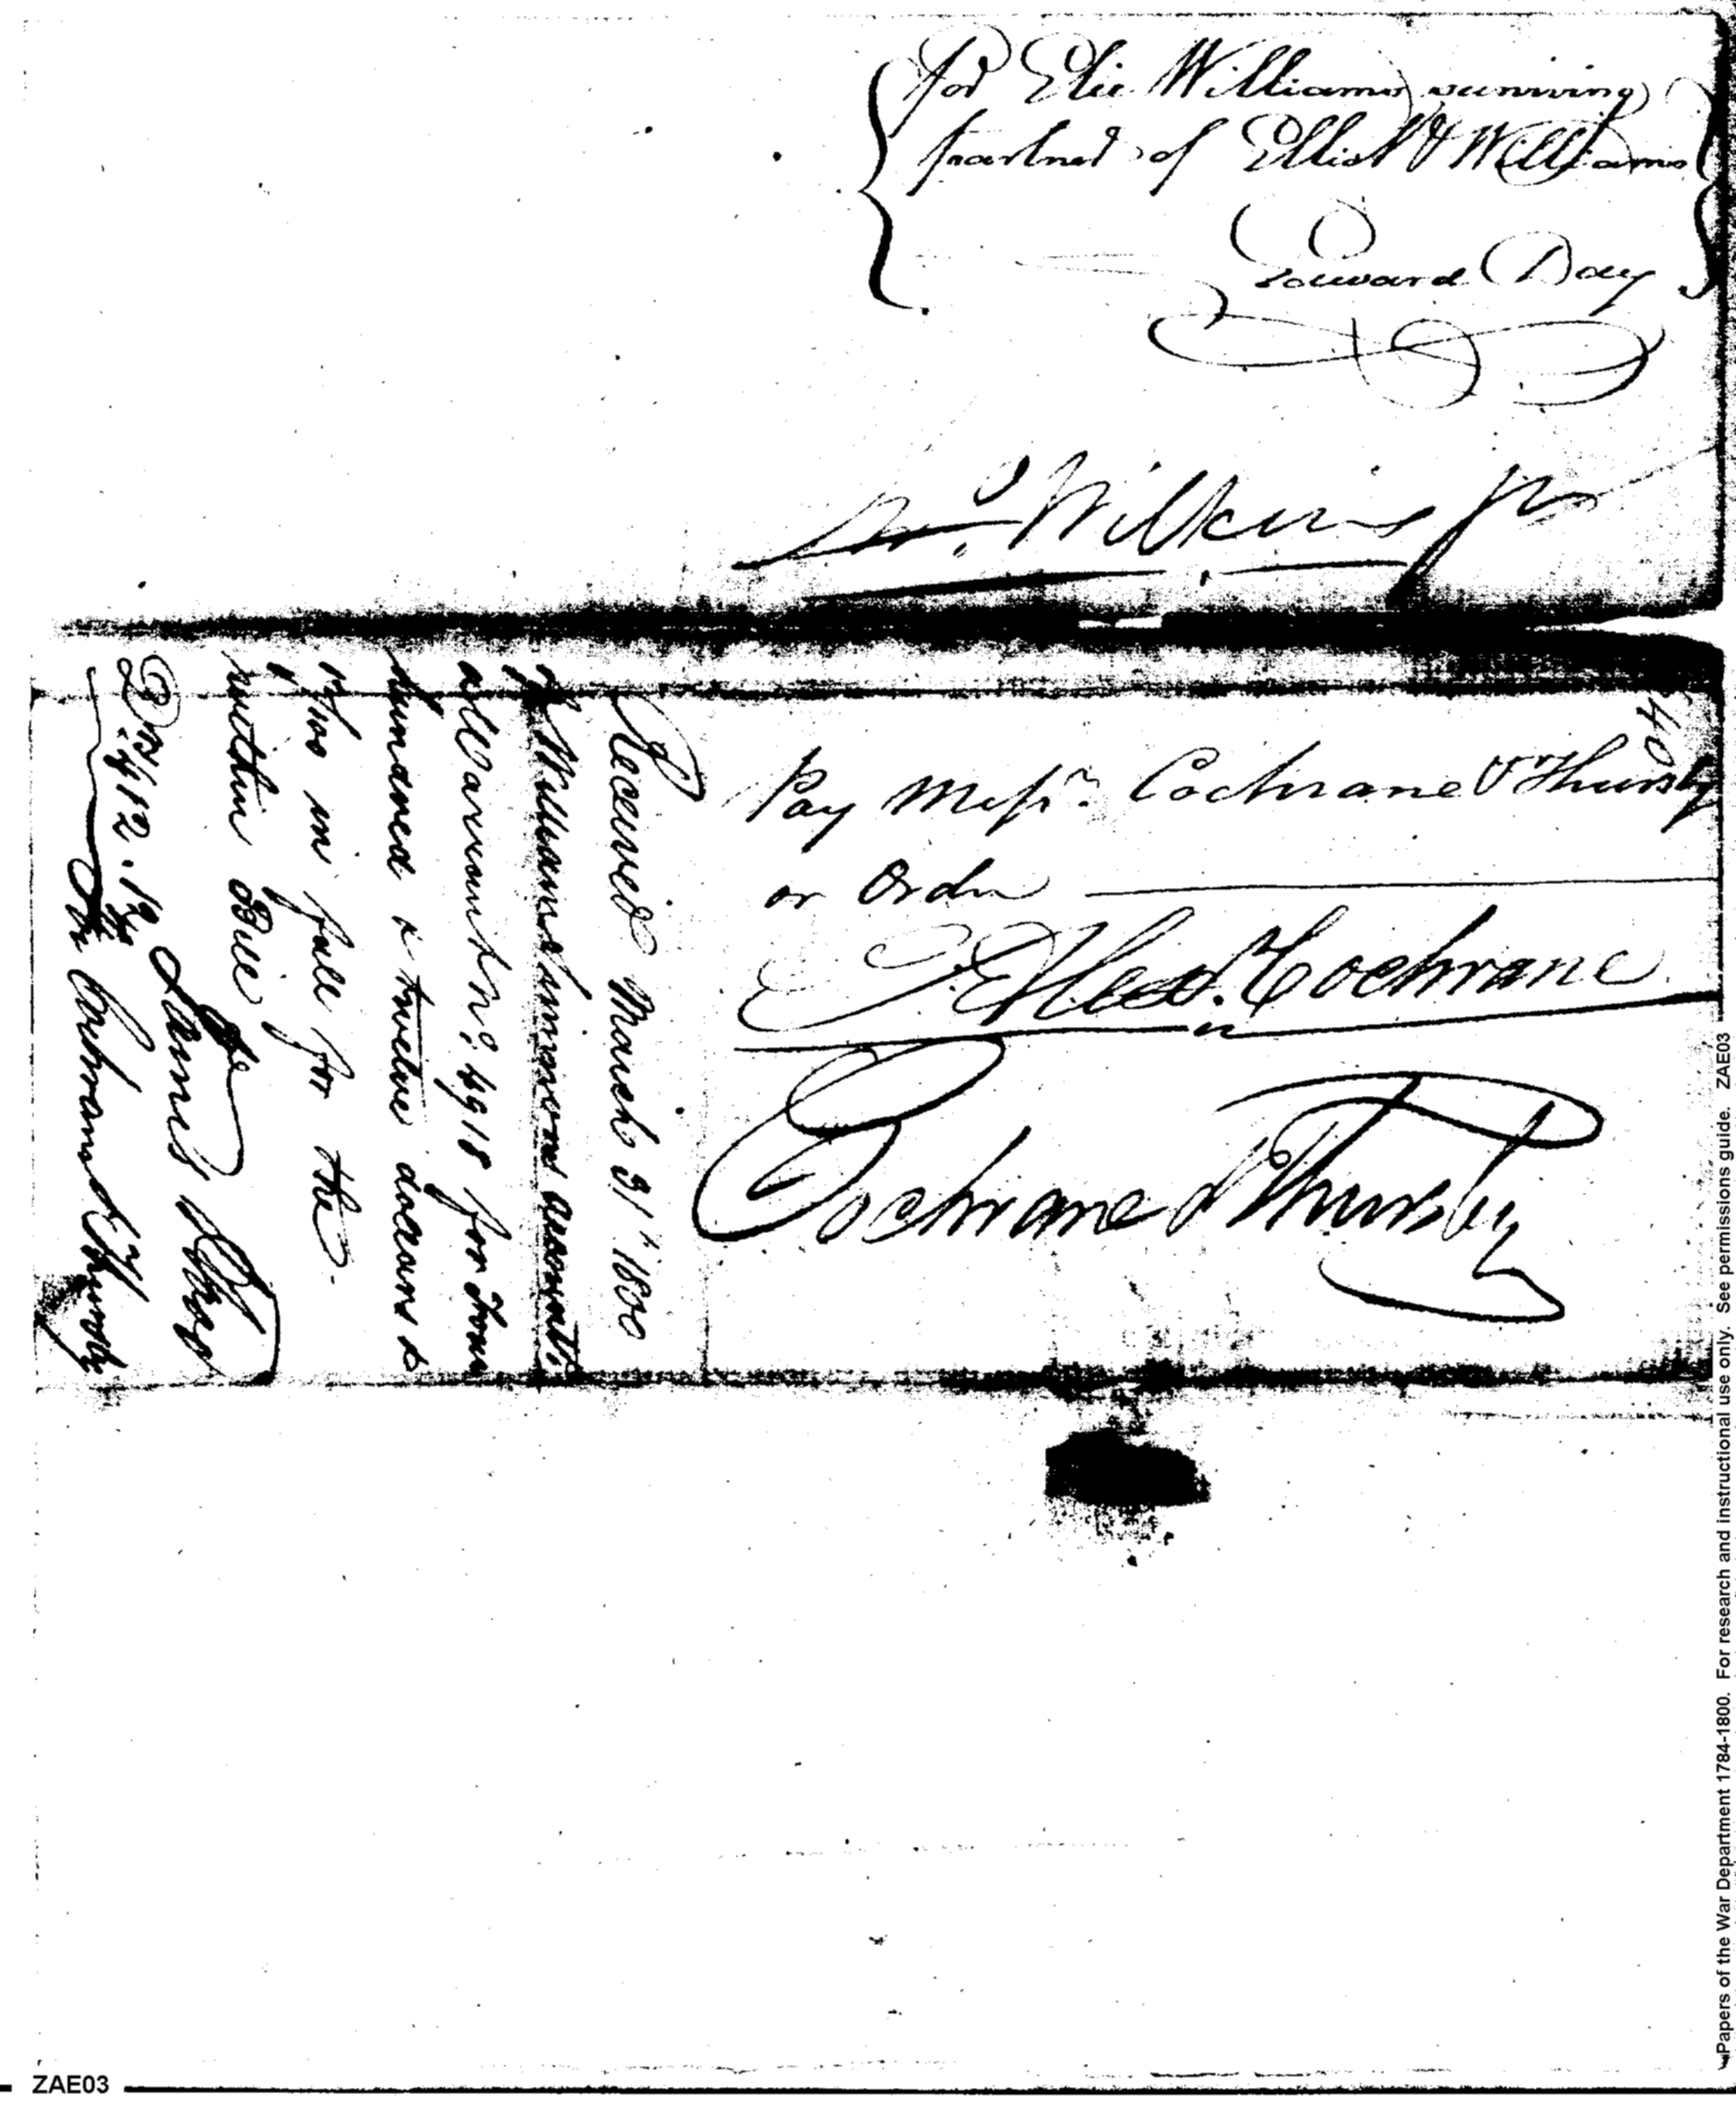 for Elie Williams surviving
partner of Elliot & Williams
Edward Day
Jno. Wilkins Jr
40
Pay Messrs. Cochrane & Thursby
or Order
Alexr. Cochrane
Cochrane & Thursby
Received March 31st 1800
of William Simmons accountt.
a Warrant No. 4918 for Four
hundred & twelve dollars &
/100 in full for the
within Bill
Drs. 412.
James
for Cochrane & Thursby
Papers of the War Department 1784-1800. For research and instructional use only. See permissions guide. ZAE03
ZAE03